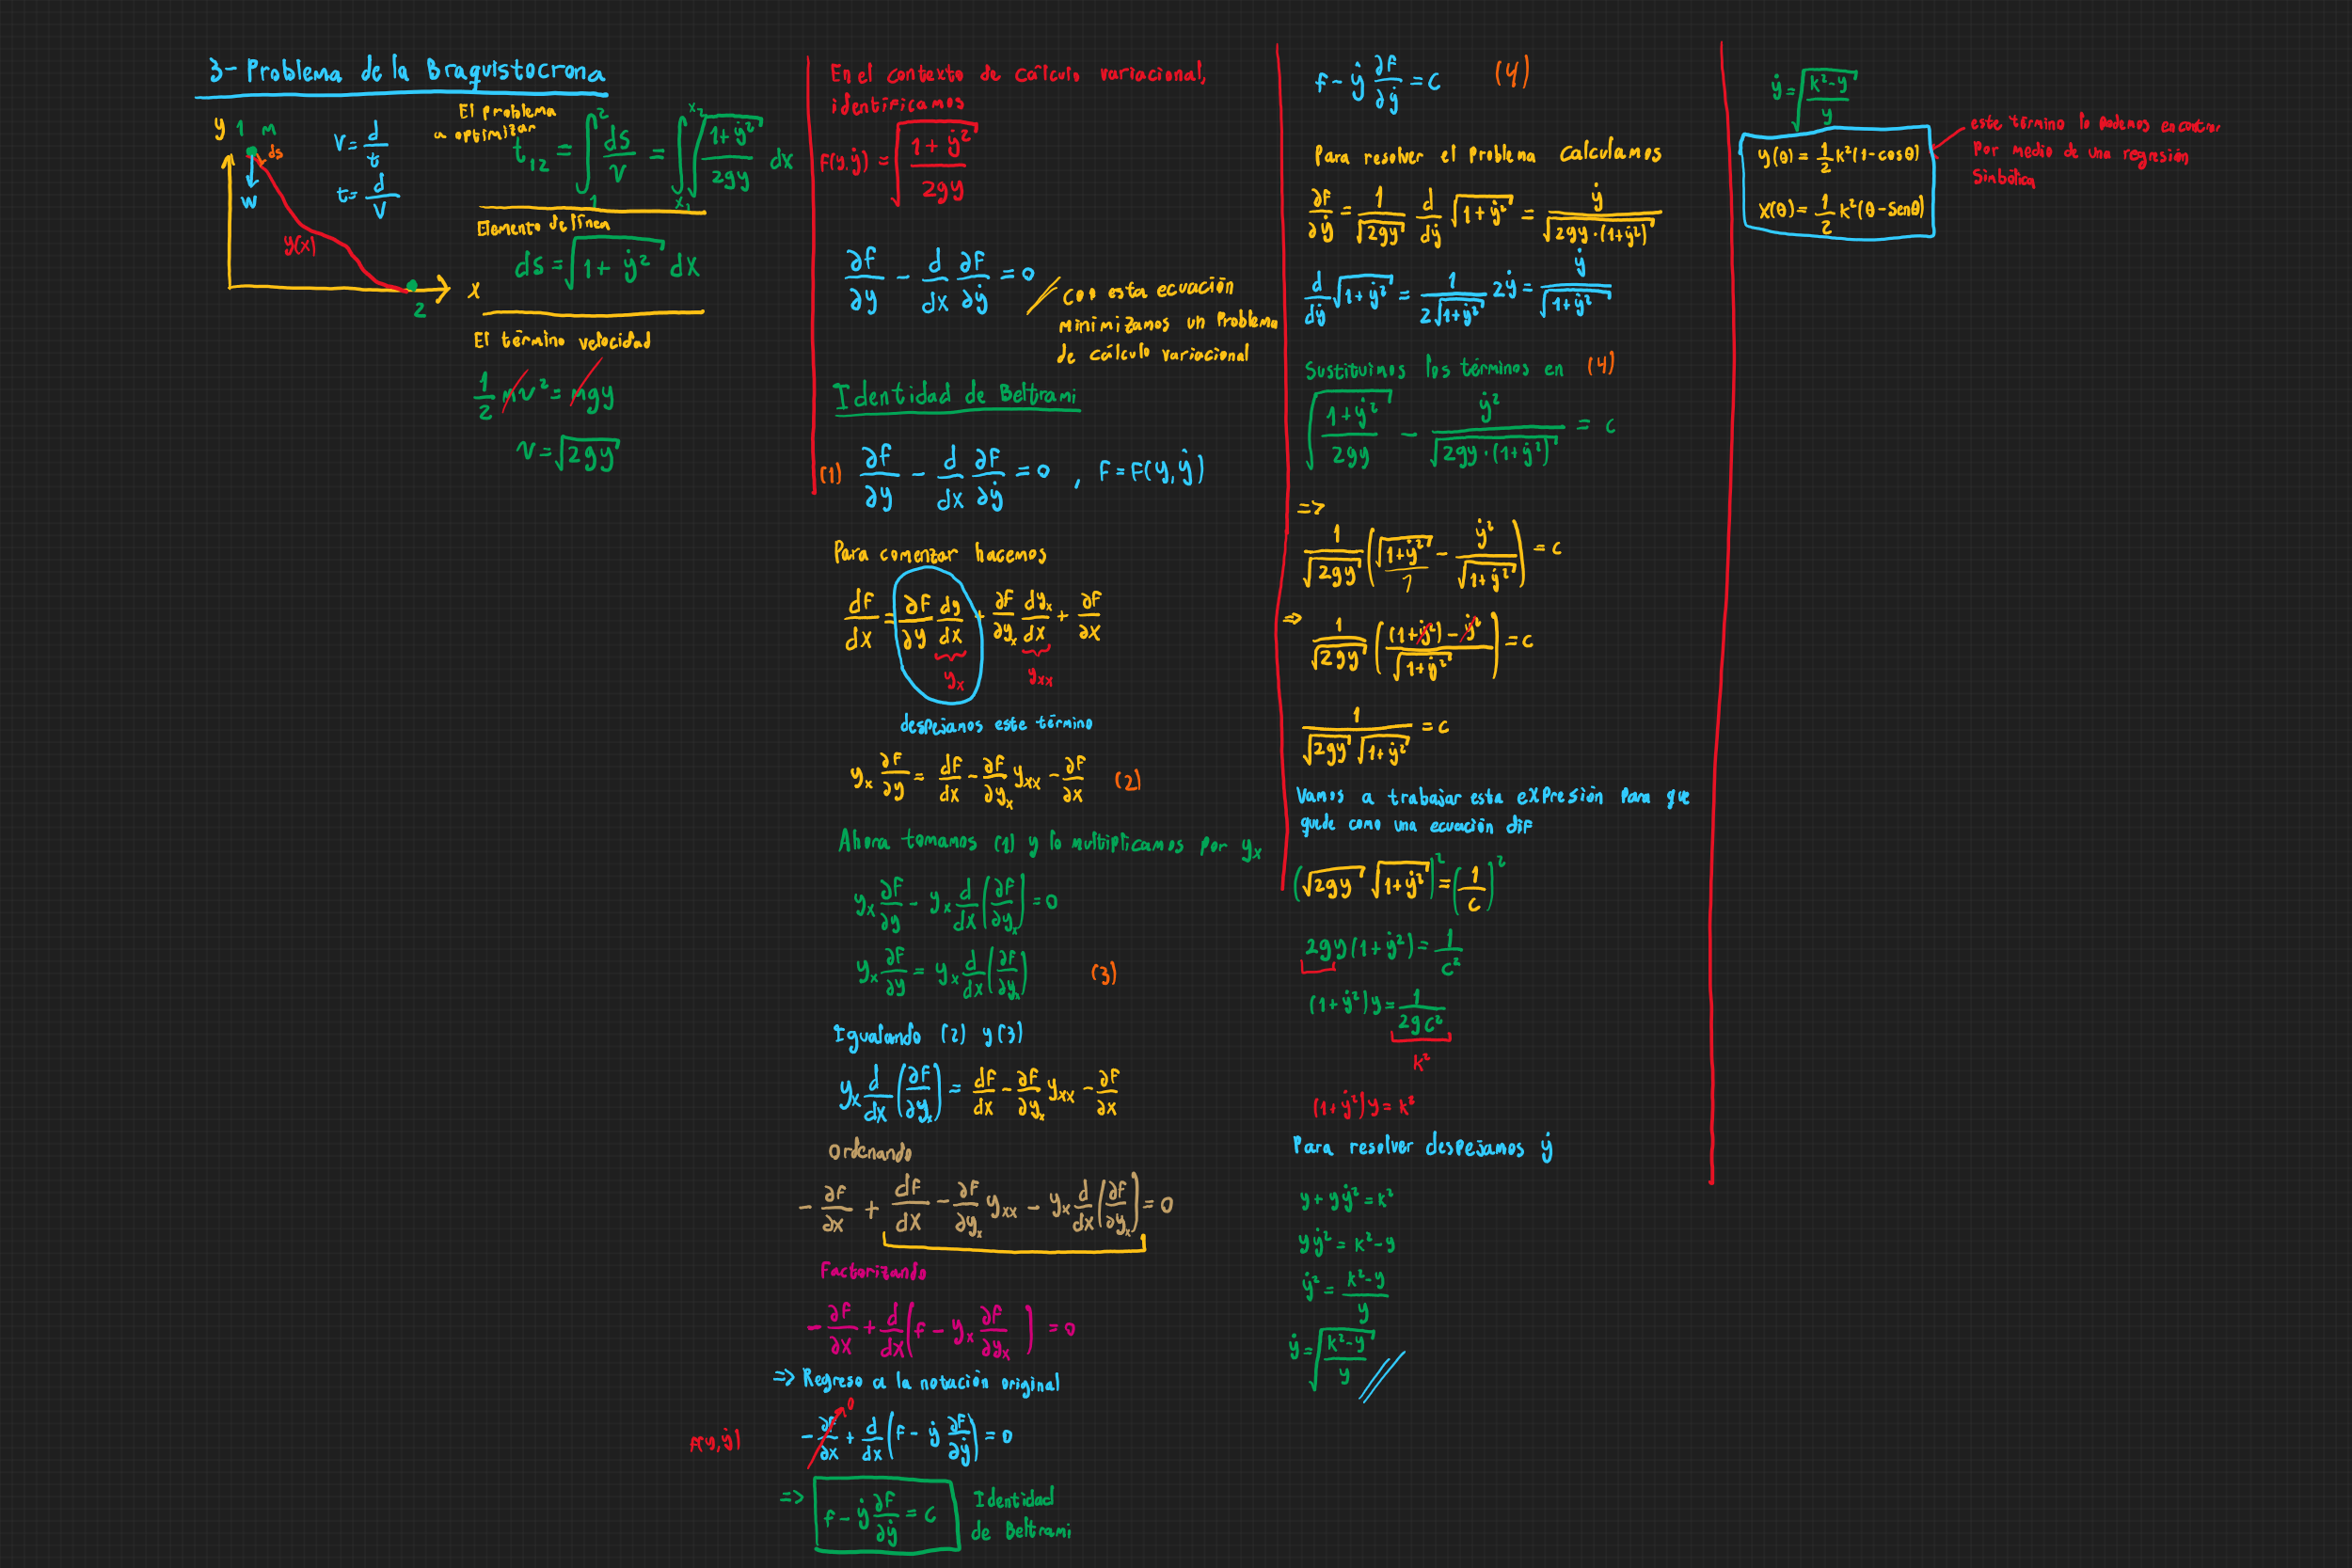 3- Problema de la Braquistocrona
y 1 m
ds
W
y(x)
x
2
v = d/t
t = d/v
El problema
a optimizar
t₁₂ = ∫₁² ds/v = ∫_{x₁}^{x₂} √((1+ẏ²)/(2gy)) dx
Elemento de línea
ds = √(1+ẏ²) dx
El término velocidad
1/2 mv² = mgy
v = √(2gy)
En el contexto de cálculo variacional,
identificamos
F(y,ẏ) = √((1+ẏ²)/(2gy))
∂f/∂y - d/dx ∂f/∂ẏ = 0
con esta ecuación
minimizamos un problema
de cálculo variacional
Identidad de Beltrami
(1) ∂f/∂y - d/dx ∂F/∂ẏ = 0 , F = F(y,ẏ)
Para comenzar hacemos
dF/dx = ∂F/∂y dy/dx + ∂F/∂yₓ dyₓ/dx + ∂F/∂x
yₓ yₓₓ
despejamos este término
yₓ ∂F/∂y = dF/dx - ∂F/∂yₓ yₓₓ - ∂F/∂x (2)
Ahora tomamos (1) y lo multiplicamos por yₓ
yₓ ∂F/∂y - yₓ d/dx (∂F/∂yₓ) = 0
yₓ ∂F/∂y = yₓ d/dx (∂F/∂yₓ) (3)
Igualando (2) y (3)
yₓ d/dx (∂F/∂yₓ) = dF/dx - ∂F/∂yₓ yₓₓ - ∂F/∂x
Ordenando
- ∂F/∂x + dF/dx - ∂F/∂yₓ yₓₓ - yₓ d/dx (∂F/∂yₓ) = 0
Factorizando
- ∂F/∂x + d/dx (f - yₓ ∂f/∂yₓ) = 0
=> Regreso a la notación original
F(y,ẏ) - ∂F/∂x + d/dx (F - ẏ ∂F/∂ẏ) = 0
0
=> f - ẏ ∂F/∂ẏ = c Identidad
de Beltrami
f - ẏ ∂F/∂ẏ = c (4)
Para resolver el problema calculamos
∂F/∂ẏ = 1/√(2gy) d/dẏ √(1+ẏ²) = ẏ/√(2gy·(1+ẏ²))
d/dẏ √(1+ẏ²) = 1/(2√(1+ẏ²)) 2ẏ = ẏ/√(1+ẏ²)
Sustituimos los términos en (4)
√((1+ẏ²)/(2gy)) - ẏ²/√(2gy·(1+ẏ²)) = c
=>
1/√(2gy) (√(1+ẏ²)/1 - ẏ²/√(1+ẏ²)) = c
=> 1/√(2gy) (((1+ẏ²)-ẏ²)/√(1+ẏ²)) = c
1/(√(2gy) √(1+ẏ²)) = c
Vamos a trabajar esta expresión para que
quede como una ecuación dif
(√(2gy) √(1+ẏ²))² = (1/c)²
2gy(1+ẏ²) = 1/c²
(1+ẏ²)y = 1/(2gc²)
k²
(1+ẏ²)y = k²
Para resolver despejamos ẏ
y + yẏ² = k²
yẏ² = k²-y
ẏ² = (k²-y)/y
ẏ = √((k²-y)/y)
ẏ = √((k²-y)/y)
y(θ) = 1/2 k²(1-cosθ)
x(θ) = 1/2 k²(θ-Senθ)
este término lo podemos encontrar
por medio de una regresión
simbólica